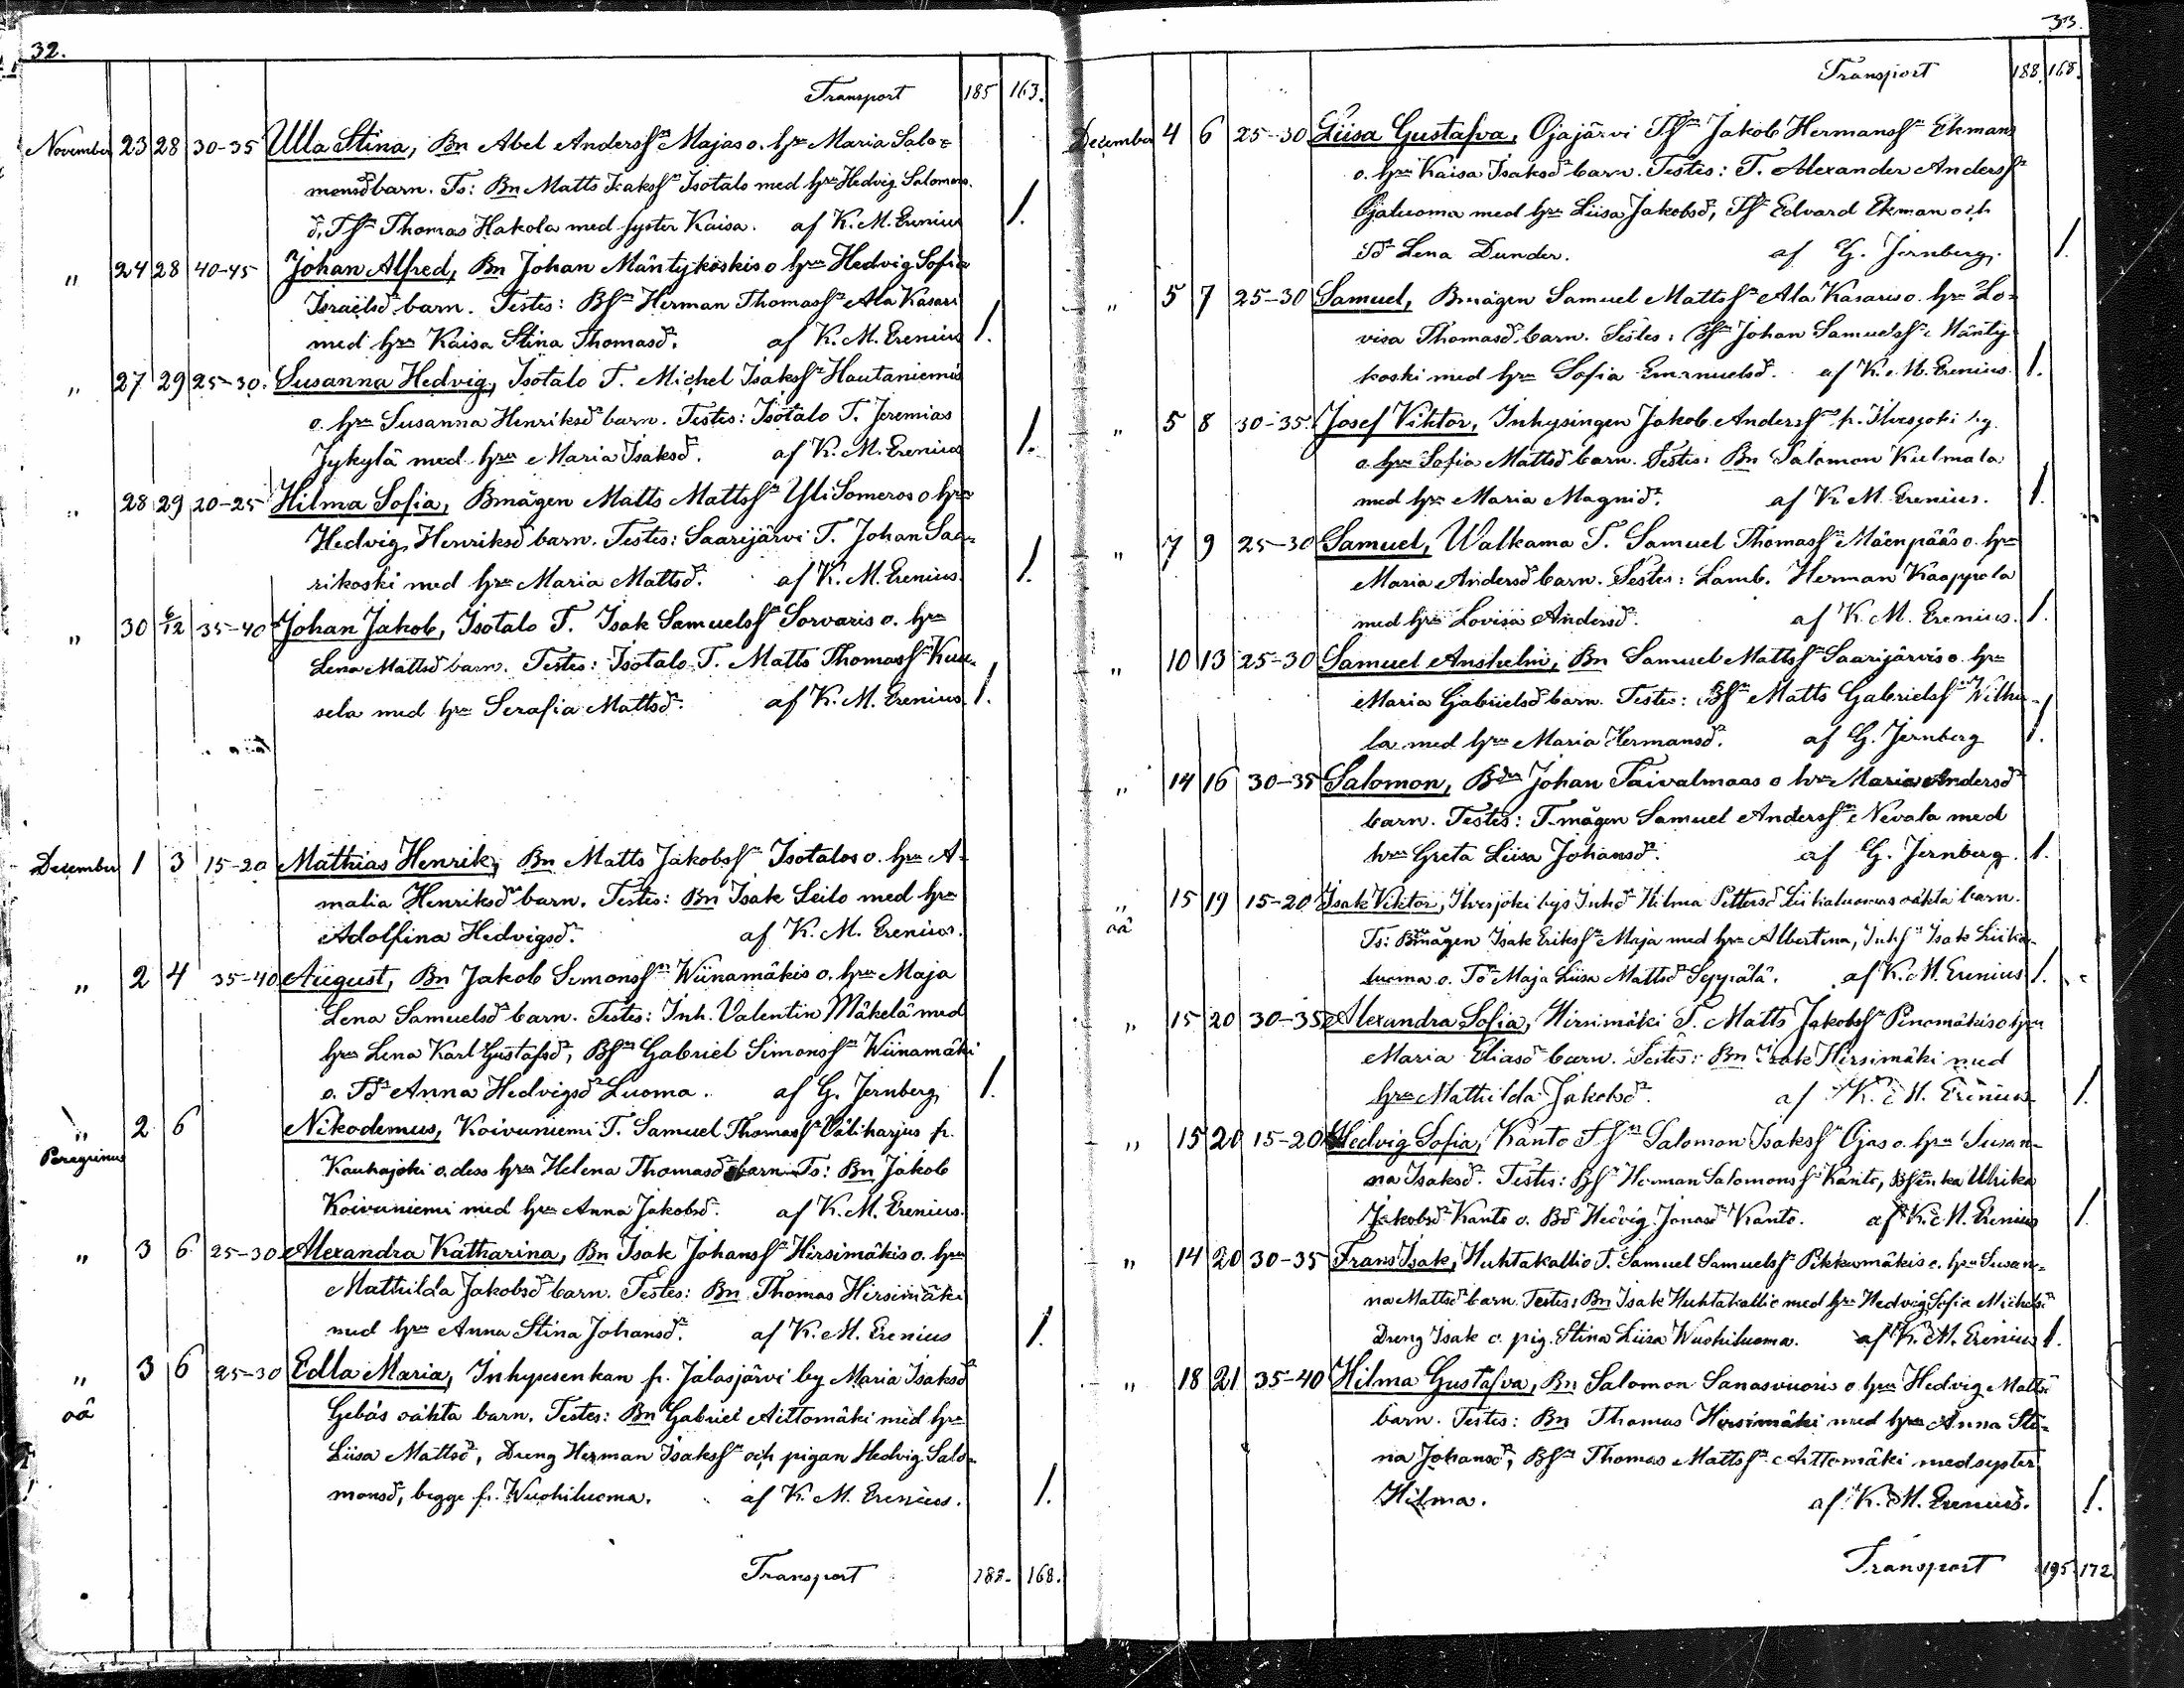 32.
Transport 185 163.
November 23 28 30-35 Ulla Stina, Bn Abel Anderssn Majas o. hru Maria Salo=
monsdr barn. Ts: Bn Matts Isakssn Isotalo med hru Hedvig Salomons.
dr, Tsn Thomas Hakola med syster Kaisa. af K. M. Erenius 1.
" 24 28 40-45 Johan Alfred, Bn Johan Mäntykoskis o hru Hedvig Sofia
Israelsdr barn. Testes: Bsn Herman Thomassn Ala Kasari
med hru Kaisa Stina Thomasdr. af K. M. Erenius 1.
" 27 29 25-30. Susanna Hedvig, Isotalo T. Michel Isakssn Hautaniemis
o. hru Susanna Henriksdr barn. Testes: Isotalo T. Jeremias
Jykylä med hru Maria Isaksdr. af K. M. Erenius 1.
" 28 29 20-25 Hilma Sofia, Bmågen Matts Mattssn Yli Someros o hru
Hedvig Henriksdr barn. Testes: Saarijärvi T. Johan Saa-
rikoski med hru Maria Mattsdr. af K. M. Erenius. 1.
" 30 6/12 35-40 Johan Jakob, Isotalo T. Isak Samuelssn Sorvaris o. hru
Lena Mattsdr barn. Testes: Isotalo T. Matts Thomassn Kuu-
sela med hru Serafia Mattsdr. af K. M. Erenius. 1.
December 1 3 15-20 Mathias Henrik, Bn Matts Jakobssn Isotalos o. hru A-
malia Henriksdr barn. Testes: Bn Isak Leilo med hru
Adolfina Hedvigsdr. af K. M. Erenius.
" 2 4 35-40 August, Bn Jakob Simonssn Wiinamäkis o. hru Maja
Lena Samuelsdr barn. Testes: Inh. Valentin Mäkelä med
hru Lena Karl Gustafsdr, Bsn Gabriel Simonssn Wiinamäki
o. Tdr Anna Hedvigsdr Luoma. af G. Jernberg 1.
" 2 6 Nikodemus, Koivuniemi T. Samuel Thomassn Väliharjus fr.
Peregrinus Kauhajoki o. dess hru Helena Thomasdr barn Ts: Bn Jakob
Koivuniemi med hru Anna Jakobsdr. af K. M. Erenius.
" 3 6 25-30 Alexandra Katharina, Bn Isak Johanssn Hirsimäkis o. hru
Mathilda Jakobsdr barn. Testes: Bn Thomas Hirsimäki
med hru Anna Stina Johansdr. af K. M. Erenius 1.
" 3 6 25-30 Edla Maria, Inhysesenkan fr. Jalasjärvi by Maria Isaksdr
oä Gebås oäkta barn. Testes: Bn Gabriel Aittomäki med hru
Liisa Mattsdr, Dreng Herman Isakssn och pigan Hedvig Salo-
monsdr, begge fr. Wuohiluoma. af K. M. Erenius. 1.
Transport 188. 168.
33.
Transport 188. 168.
December 4 6 25-30 Liisa Gustafva, Ojajärvi Tsn Jakob Hermanssn Ekmans
o. hru Kaisa Isaksdr barn. Testes: T. Alexander Anderssn
Ojaluoma med hru Liisa Jakobsdr, Tsn Edvard Ekman och
Tdr Lena Dunder. af G. Jernberg. 1.
" 5 7 25-30 Samuel, Bmågen Samuel Mattssn Ala Kasaris o. hru Lo-
visa Thomasdr barn. Testes: Bsn Johan Samuelssn Mänty-
koski med hru Sofia Emanuelsdr. af K. M. Erenius. 1.
" 5 8 30-35 Josef Viktor, Inhysingen Jakob Anderssons fr. Ilvesjoki by
o. hru Sofia Mattsdr barn. Testes: Bn Salomon Kielmala
med hru Maria Magnidr. af K. M. Erenius. 1.
" 7 9 25-30 Samuel, Walkama T. Samuel Thomassn Mäenpääs o. hru
Maria Andersdr barn. Testes: Lamb. Herman Kaappola
med hru Lovisa Andersdr. af K. M. Erenius. 1.
" 10 13 25-30 Samuel Anshelm, Bn Samuel Mattssn Saarijärvis o. hru
Maria Gabrielsdr barn. Testes: Bsn Matts Gabrielssn Wilhu-
la med hru Maria Hermansdr. af G. Jernberg 1.
" 14 16 30-35 Salomon, Bdn Johan Taivalmaas o hru Maria Andersdr
barn. Testes: T-mågen Samuel Anderssn Nevala med
hru Greta Liisa Johansdr. af G. Jernberg. 1.
" 15 19 15-20 Isak Viktor, Ilvesjoki bys Inhdr Hilma Pettersdr Liikaluomas oäkta barn.
oä Ts: Bmågen Isak Erikssn Maja med hru Albertina, Inhsn Isak Liika-
luoma o. Tdr Maja Liisa Mattsdr Seppälä. af K. M. Erenius 1.
" 15 20 30-35 Alexandra Sofia, Hirsimäki T. Matts Jakobssn Pinomäkis o hru
Maria Eliasdr barn. Testes: Bn Isak Hirsimäki med
hru Mathilda Jakobsdr. af K. M. Erenius 1.
" 15 20 15-20 Hedvig Sofia, Kanto Tsn Salomon Isakssn Ojas o. hru Susan-
na Isaksdr. Testes: Bsn Herman Salomonssn Kanto, Bsenka Ulrika
Jakobsdr Kanto o. Bdr Hedvig Jonasdr Kanto. af K. M. Erenius 1.
" 14 20 30-35 Frans Isak, Huhtakallio T. Samuel Samuelssn Pikkumäkis o. hru Susan-
na Mattsdr barn. Testes: Bn Isak Huhtakallio med hru Hedvig Sofia Michelsdr
Dreng Isak o. pig. Stina Liisa Wuohiluoma. af K. M. Erenius 1.
" 18 21 35-40 Hilma Gustafva, Bn Salomon Sanasvuoris o hru Hedvig Mattsdr
barn. Testes: Bn Thomas Hirsimäki med hru Anna Sti-
na Johansdr, Bsn Thomas Mattssn Aittomäki med syster
Hilma. af K. M. Erenius. 1.
Transport 195. 172.